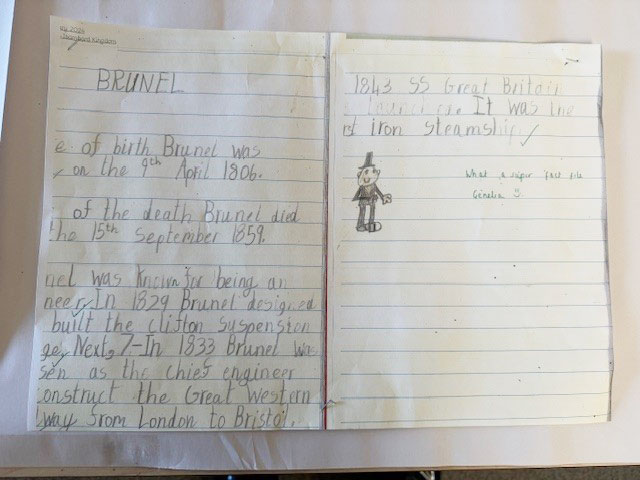 BRUNEL
e of birth Brunel was
on the 9th April 1806.
of the death Brunel died
the 15th September 1859.
nel was known for being an
neer. In 1829 Brunel designed
built the clifton Suspension
ge. Next, 7-In 1833 Brunel was
sen as the chief engineer
onstruct the Great Western
way from London to Bristol.
1843 SS Great Britain
It was the
st iron steamship.
What a super fact file